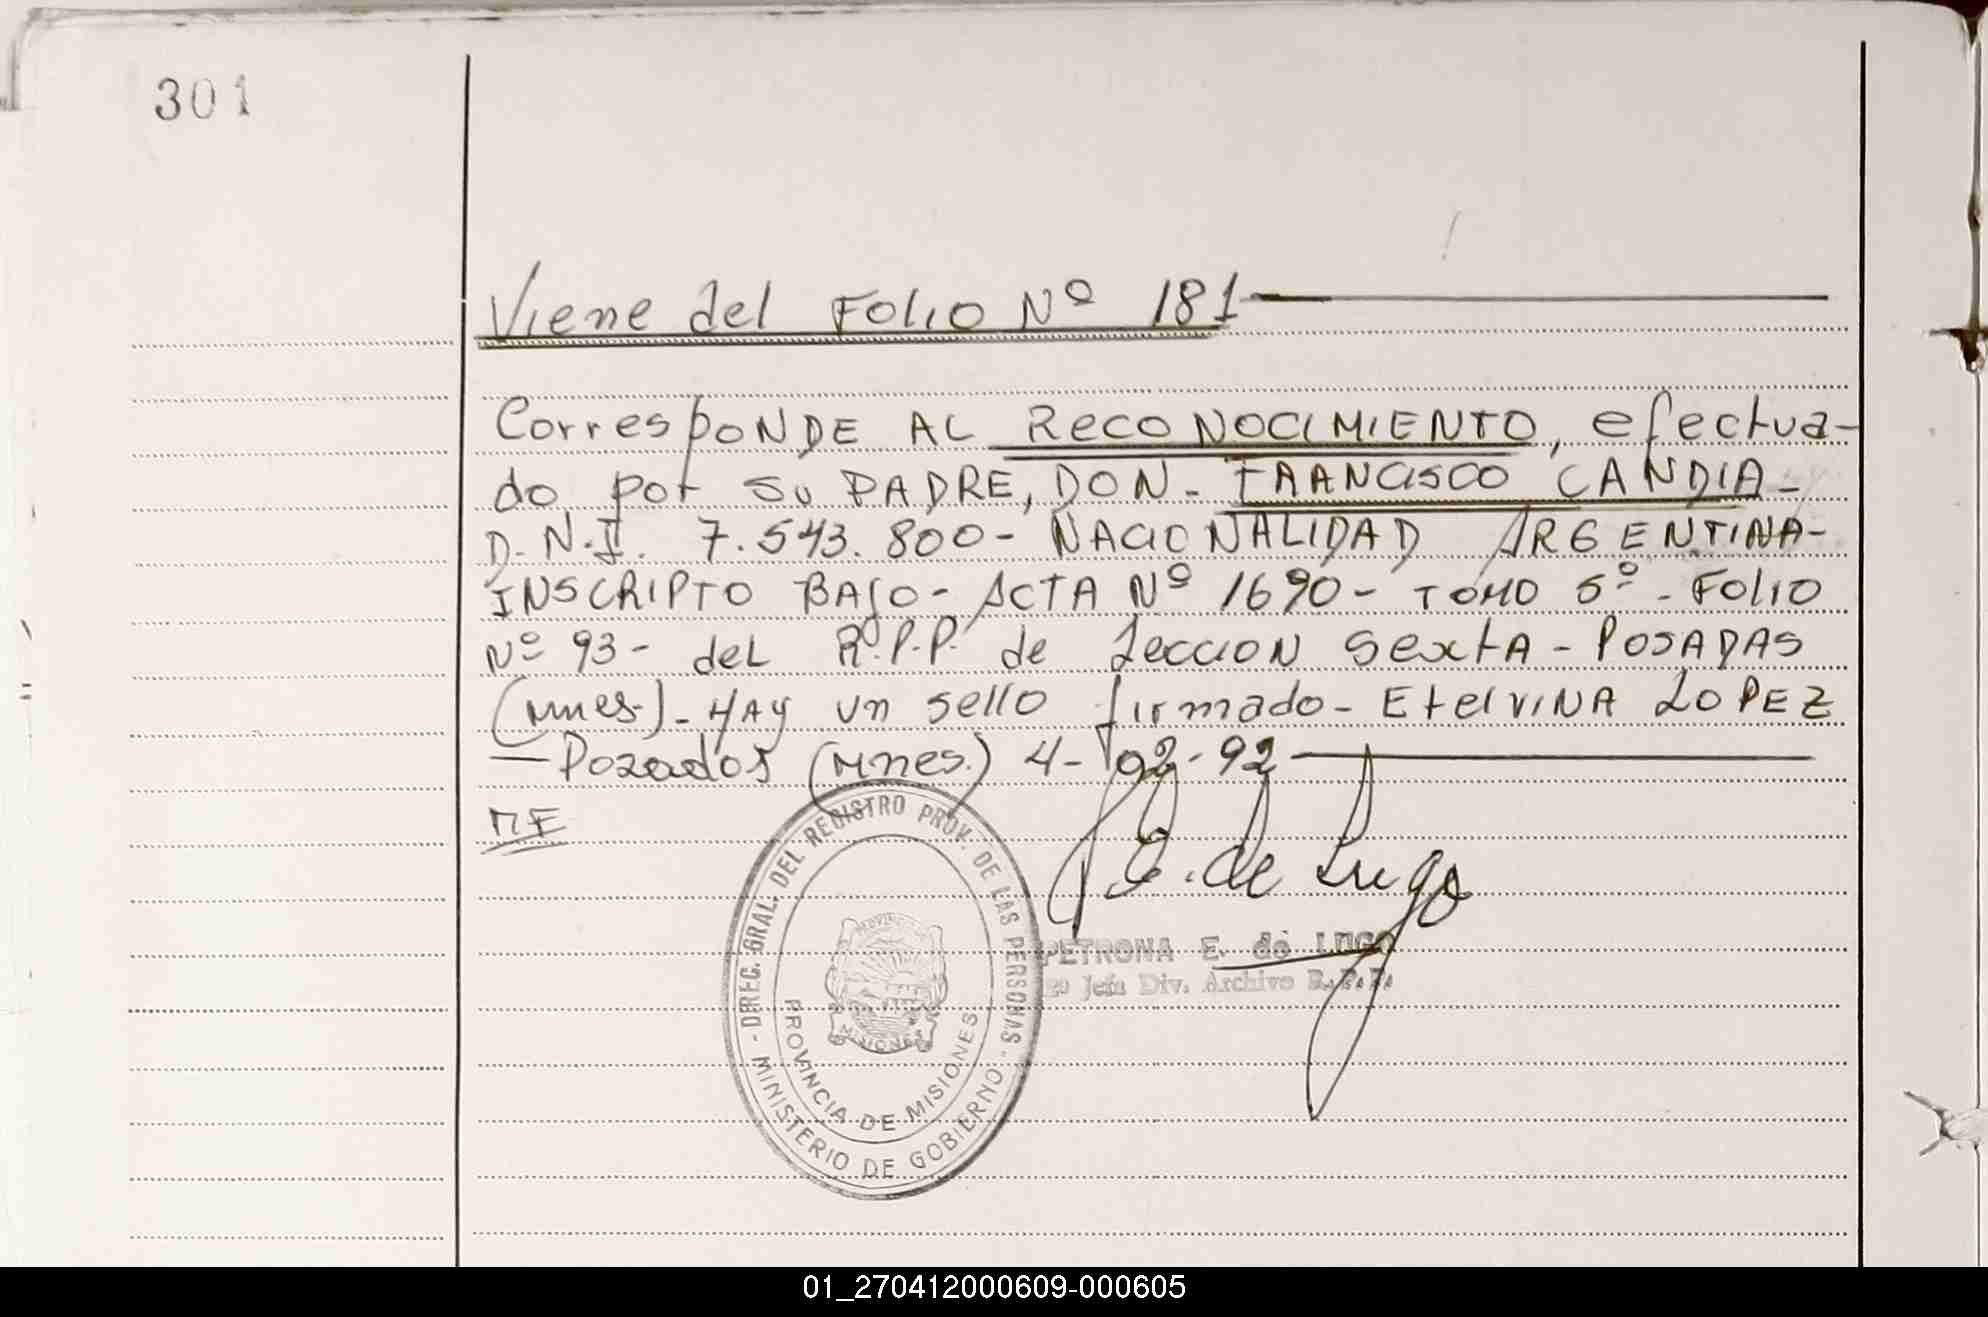 301
Viene del Folio Nº 181
Corresponde al Reconocimiento, efectua-
do por su Padre, Don - Francisco Candia -
D.N.I. 7.543.800 - Nacionalidad Argentina -
Inscripto Bajo - Acta Nº 1690 - Tomo 5º - Folio
Nº 93 - del Rº.P.P. de Seccion Sexta - Posadas
(Mnes.) - Hay un sello firmado - Etelvina Lopez
— Posadas (Mnes.) 4-02-92
ME
P. E. de Lugo
PETRONA E. de LUGO
Jefa Div. Archivo R.P.P.
- DIREC. GRAL. DEL REGISTRO PROV. DE LAS PERSONAS -
MINISTERIO DE GOBIERNO
PROVINCIA DE MISIONES
PROVINCIA
MISIONES
01_270412000609-000605